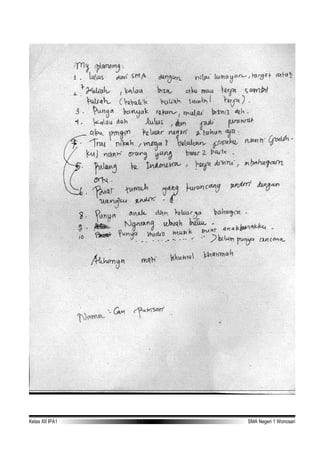 My planning:
1. lulus dari SMA dengan nilai lumayan, target rata2
2. Kuliah, kalau bisa aku mau kerja sambil
kuliah (kebalik kuliah sambil kerja).
3. Punya banyak teman, mulai bisnis deh.
4. Kalau dah lulus, dan jadi perawat
aku pingin keluar negeri 2 tahun aja.
Trus nikah, moga2 bojoku nanti (jodoh-
ku) nanti orang yang baik2 bae.
5. Pulang ke Indonesia, kerja disini, mbahagiain
ortu.
6. Buat rumah yang kurancang sendiri dengan
uangku sendiri.
8. Punya anak dan keluarga bahagia.
9. Ngarang sebuah buku.
10. Punya studio musik buat anak
belum punya rencana
Akhirnya mati khusnul khotimah
Nama: Cari
Kelas XII IPA1
SMA Negeri 1 Wonosari